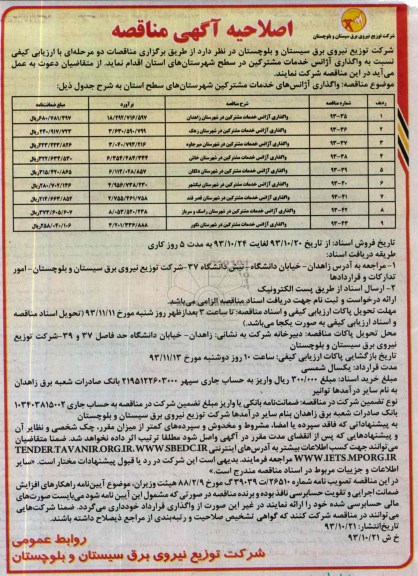 شرکت توزیع نیروی برق سیستان و بلوچستان
اصلاحیه آگهی مناقصه
شرکت توزیع نیروی برق سیستان و بلوچستان در نظر دارد از طریق برگزاری مناقصات دو مرحله‌ای با ارزیابی کیفی
نسبت به واگذاری آژانس خدمات مشترکین در سطح شهرستان‌های استان اقدام نماید. از متقاضیان دعوت به عمل
می‌آید در این مناقصه شرکت نمایند.
موضوع مناقصه: واگذاری آژانس‌های خدمات مشترکین شهرستان‌های سطح استان به شرح جدول ذیل:
ردیف شماره مناقصه شرح مناقصه برآورد مبلغ ضمانتنامه
۱ ۹۳-۳۵ واگذاری آژانس خدمات مشترکین در شهرستان زاهدان
۲ ۹۳-۳۶ واگذاری آژانس خدمات مشترکین در شهرستان زهک
۳ ۹۳-۳۷ واگذاری آژانس خدمات مشترکین در شهرستان میرجاوه
۴ ۹۳-۳۸ واگذاری آژانس خدمات مشترکین در شهرستان خاش
۵ ۹۳-۳۹ واگذاری آژانس خدمات مشترکین در شهرستان دلگان
۶ ۹۳-۴۰ واگذاری آژانس خدمات مشترکین در شهرستان نیکشهر
۷ ۹۳-۴۱ واگذاری آژانس خدمات مشترکین در شهرستان قصر قند
۸ ۹۳-۴۲ واگذاری آژانس خدمات مشترکین در شهرستان راسک و سرباز
۹ ۹۳-۴۳ واگذاری آژانس خدمات مشترکین در شهرستان
تاریخ فروش اسناد: از تاریخ ۹۳/۱۰/۲۰ لغایت ۹۳/۱۰/۲۴ به مدت ۵ روز کاری
طریقه دریافت اسناد:
۱-مراجعه به آدرس زاهدان- خیابان دانشگاه- نبش دانشگاه ۳۷-شرکت توزیع نیروی برق سیستان و بلوچستان-امور
تدارکات و قراردادها
۲- ارسال اسناد از طریق پست الکترونیک
ارائه درخواست و ثبت نام جهت دریافت اسناد مناقصه الزامی می‌باشد.
مهلت تحویل پاکات ارزیابی کیفی و اسناد مناقصه: تا ساعت ۳ بعدازظهر روز شنبه مورخ ۹۳/۱۱/۱۱ (تحویل اسناد مناقصه
و اسناد ارزیابی کیفی به صورت یکجا می‌باشد.)
محل تحویل پاکات مناقصه: دبیرخانه شرکت به نشانی: زاهدان- خیابان دانشگاه حد فاصل ۳۷ و ۳۹-شرکت توزیع
نیروی برق سیستان و بلوچستان
تاریخ بازگشایی پاکات ارزیابی کیفی: ساعت ۱۰ روز دوشنبه مورخ ۹۳/۱۱/۱۳
مدت قرارداد: یکسال شمسی
مبلغ خرید اسناد: مبلغ ۳۰۰/۰۰۰ ریال واریز به حساب جاری سپهر ۲۱۹۵۱۲۲۶۰۳۰۰۰ بانک صادرات شعبه برق زاهدان
به نام سایر درآمدها توانیر
نوع تضمین شرکت در مناقصه: ضمانت‌نامه بانکی یا واریز مبلغ تضمین شرکت در مناقصه به حساب جاری ۰۱۰۳۴۰۳۸۱۵۰۰۲
بانک صادرات شعبه برق زاهدان بنام سایر درآمدها شرکت توزیع نیروی برق سیستان و بلوچستان
به پیشنهاداتی که فاقد سپرده یا امضا، مشروط و مخدوش و سپرده‌های کمتر از میزان مقرر، چک شخصی و نظایر آن
و پیشنهادهایی که پس از انقضای مدت مقرر در آگهی واصل شود مطلقا ترتیب اثر داده نخواهد شد. ضمنا متقاضیان
می‌توانند جهت کسب اطلاعات بیشتر به آدرس‌های اینترنتی TENDER.TAVANIR.ORG.IR،WWW.SBEDC.IR
WWW.IETS.MPORG.IR مراجعه فرمایند. بدیهی است این شرکت در رد یا قبول پیشنهادات مختار است. «سایر
اطلاعات و جزییات مربوط در اسناد مناقصه مندرج است.»
در این مناقصه تصویب نامه شماره ۲۶۵۱۰/ت ۳۹۰۳۹ک مورخ ۸۸/۲/۹ هیئت وزیران، موضوع آیین‌نامه راهکارهای افزایش
ضمانت اجرایی و تقویت حسابرسی نافذ بوده و برنده مناقصه در صورتی که مشمول این آیین نامه شود می‌بایست صورت‌های
مالی حسابرسی شده خود را ارائه نمایند در غیر این صورت از واگذاری قرارداد خودداری می‌گردد. ضمنا شرکت‌هایی
می‌توانند در مناقصه شرکت کنند که گواهی تشخیص صلاحیت و رتبه‌بندی از مراجع ذیصلاح داشته باشند.
تاریخ انتشار: ۹۳/۱۰/۲۱
خ ش ۹۳/۱۰/۲۱
روابط عمومی
شرکت توزیع نیروی برق سیستان و بلوچستان